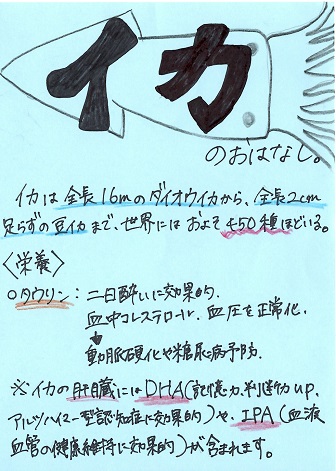 イカ
のおはなし。
イカは全長16mのダイオウイカから、全長2cm
足らずの豆イカまで、世界にはおよそ450種ほどいる。
〈栄養〉
○タウリン：二日酔いに効果的.
血中コレステロール.血圧を正常化.
↓
動脈硬化や糖尿病予防.
※イカの肝臓にはDHA(記憶力.判断力up.
アルツハイマー型認知症に効果的)や、IPA(血液
血管の健康維持に効果的)が含まれます。